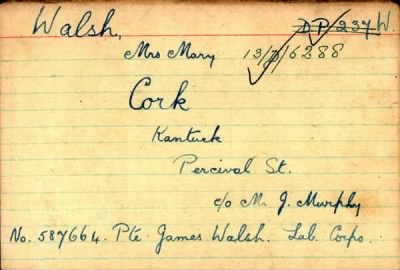 Walsh, D.P./237/W.
Mrs Mary 13/D/6288
Cork
Kanturk
Percival St.
c/o Mr. J. Murphy
No. 587664. Pte. James Walsh. Lab. Corps.